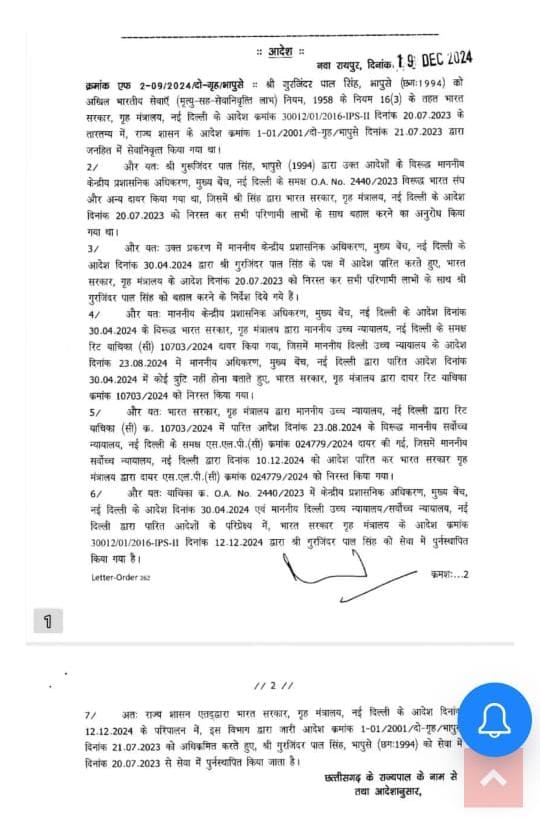 :: आदेश ::
नवा रायपुर, दिनांक, 19 DEC 2024
क्रमांक एफ 2-09/2024/दो-गृह/भापुसे :: श्री गुरजिंदर पाल सिंह, भापुसे (छग:1994) को
अखिल भारतीय सेवाएँ (मृत्यु-सह-सेवानिवृत्ति लाभ) नियम, 1958 के नियम 16(3) के तहत भारत
सरकार, गृह मंत्रालय, नई दिल्ली के आदेश क्रमांक 30012/01/2016-IPS-II दिनांक 20.07.2023 के
तारतम्य में, राज्य शासन के आदेश क्रमांक 1-01/2001/दो-गृह/भापुसे दिनांक 21.07.2023 द्वारा
जनहित में सेवानिवृत्त किया गया था।
2/ और यतः श्री गुरूजिंदर पाल सिंह, भापुसे (1994) द्वारा उक्त आदेशों के विरूद्ध माननीय
केन्द्रीय प्रशासनिक अधिकरण, मुख्य बेंच, नई दिल्ली के समक्ष O.A. No. 2440/2023 विरूद्ध भारत संघ
और अन्य दायर किया गया था, जिसमें श्री सिंह द्वारा भारत सरकार, गृह मंत्रालय, नई दिल्ली के आदेश
दिनांक 20.07.2023 को निरस्त कर सभी परिणामी लाभों के साथ बहाल करने का अनुरोध किया
गया था।
3/ और यतः उक्त प्रकरण में माननीय केन्द्रीय प्रशासनिक अधिकरण, मुख्य बेंच, नई दिल्ली के
आदेश दिनांक 30.04.2024 द्वारा श्री गुरजिंदर पाल सिंह के पक्ष में आदेश पारित करते हुए, भारत
सरकार, गृह मंत्रालय के आदेश दिनांक 20.07.2023 को निरस्त कर सभी परिणामी लाभों के साथ श्री
गुरजिंदर पाल सिंह को बहाल करने के निर्देश दिये गये हैं।
4/ और यतः माननीय केन्द्रीय प्रशासनिक अधिकरण, मुख्य बेंच, नई दिल्ली के आदेश दिनांक
30.04.2024 के विरूद्ध भारत सरकार, गृह मंत्रालय द्वारा माननीय उच्च न्यायालय, नई दिल्ली के समक्ष
रिट याचिका (सी) 10703/2024 दायर किया गया, जिसमें माननीय दिल्ली उच्च न्यायालय के आदेश
दिनांक 23.08.2024 में माननीय अधिकरण, मुख्य बेंच, नई दिल्ली द्वारा पारित आदेश दिनांक
30.04.2024 में कोई त्रुटि नहीं होना बताते हुए, भारत सरकार, गृह मंत्रालय द्वारा दायर रिट याचिका
क्रमांक 10703/2024 को निरस्त किया गया।
5/ और यतः भारत सरकार, गृह मंत्रालय द्वारा माननीय उच्च न्यायालय, नई दिल्ली द्वारा रिट
याचिका (सी) क्र. 10703/2024 में पारित आदेश दिनांक 23.08.2024 के विरूद्ध माननीय सर्वोच्च
न्यायालय, नई दिल्ली के समक्ष एस.एल.पी.(सी) क्रमांक 024779/2024 दायर की गई, जिसमें माननीय
सर्वोच्च न्यायालय, नई दिल्ली द्वारा दिनांक 10.12.2024 को आदेश पारित कर भारत सरकार गृह
मंत्रालय द्वारा दायर एस.एल.पी.(सी) क्रमांक 024779/2024 को निरस्त किया गया।
6/ और यतः याचिका क्र. O.A. No. 2440/2023 में केन्द्रीय प्रशासनिक अधिकरण, मुख्य बेंच,
नई दिल्ली के आदेश दिनांक 30.04.2024 एवं माननीय दिल्ली उच्च न्यायालय/सर्वोच्च न्यायालय, नई
दिल्ली द्वारा पारित आदेशों के परिप्रेक्ष्य में, भारत सरकार गृह मंत्रालय के आदेश क्रमांक
30012/01/2016-IPS-II दिनांक 12.12.2024 द्वारा श्री गुरजिंदर पाल सिंह को सेवा में पुर्नस्थापित
किया गया है।
Letter-Order 262
क्रमशः...2
1
// 2 //
7/ अतः राज्य शासन एतद्द्वारा भारत सरकार, गृह मंत्रालय, नई दिल्ली के आदेश दिनांक
12.12.2024 के परिपालन में, इस विभाग द्वारा जारी आदेश क्रमांक 1-01/2001/दो-गृह/भापुसे
दिनांक 21.07.2023 को अधिक्रमित करते हुए, श्री गुरजिंदर पाल सिंह, भापुसे (छग:1994) को सेवा में
दिनांक 20.07.2023 से सेवा में पुर्नस्थापित किया जाता है।
छत्तीसगढ़ के राज्यपाल के नाम से
तथा आदेशानुसार,